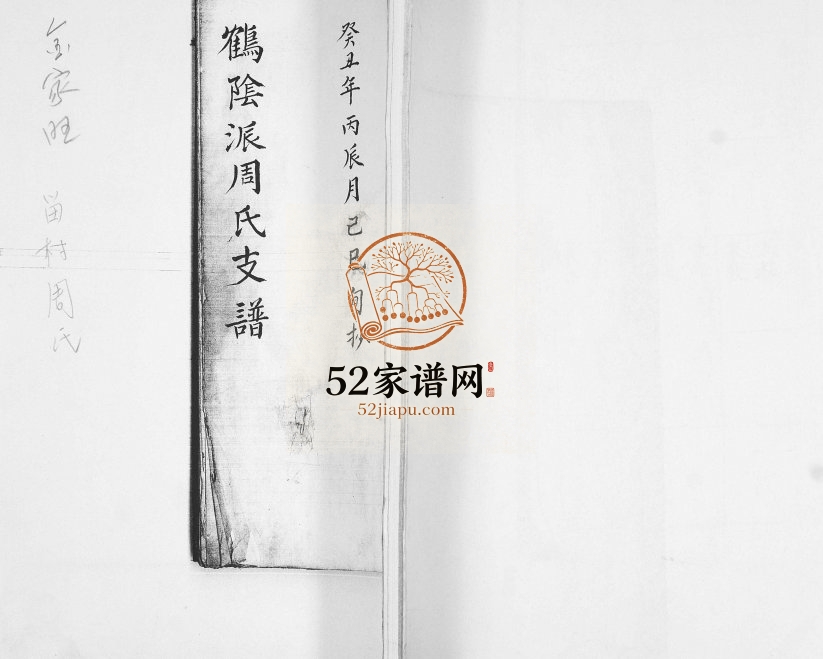 癸丑年丙辰月己巳旬抄
鶴陰派周氏支譜
金家旺 留村周氏
52家谱网
52jiapu.com